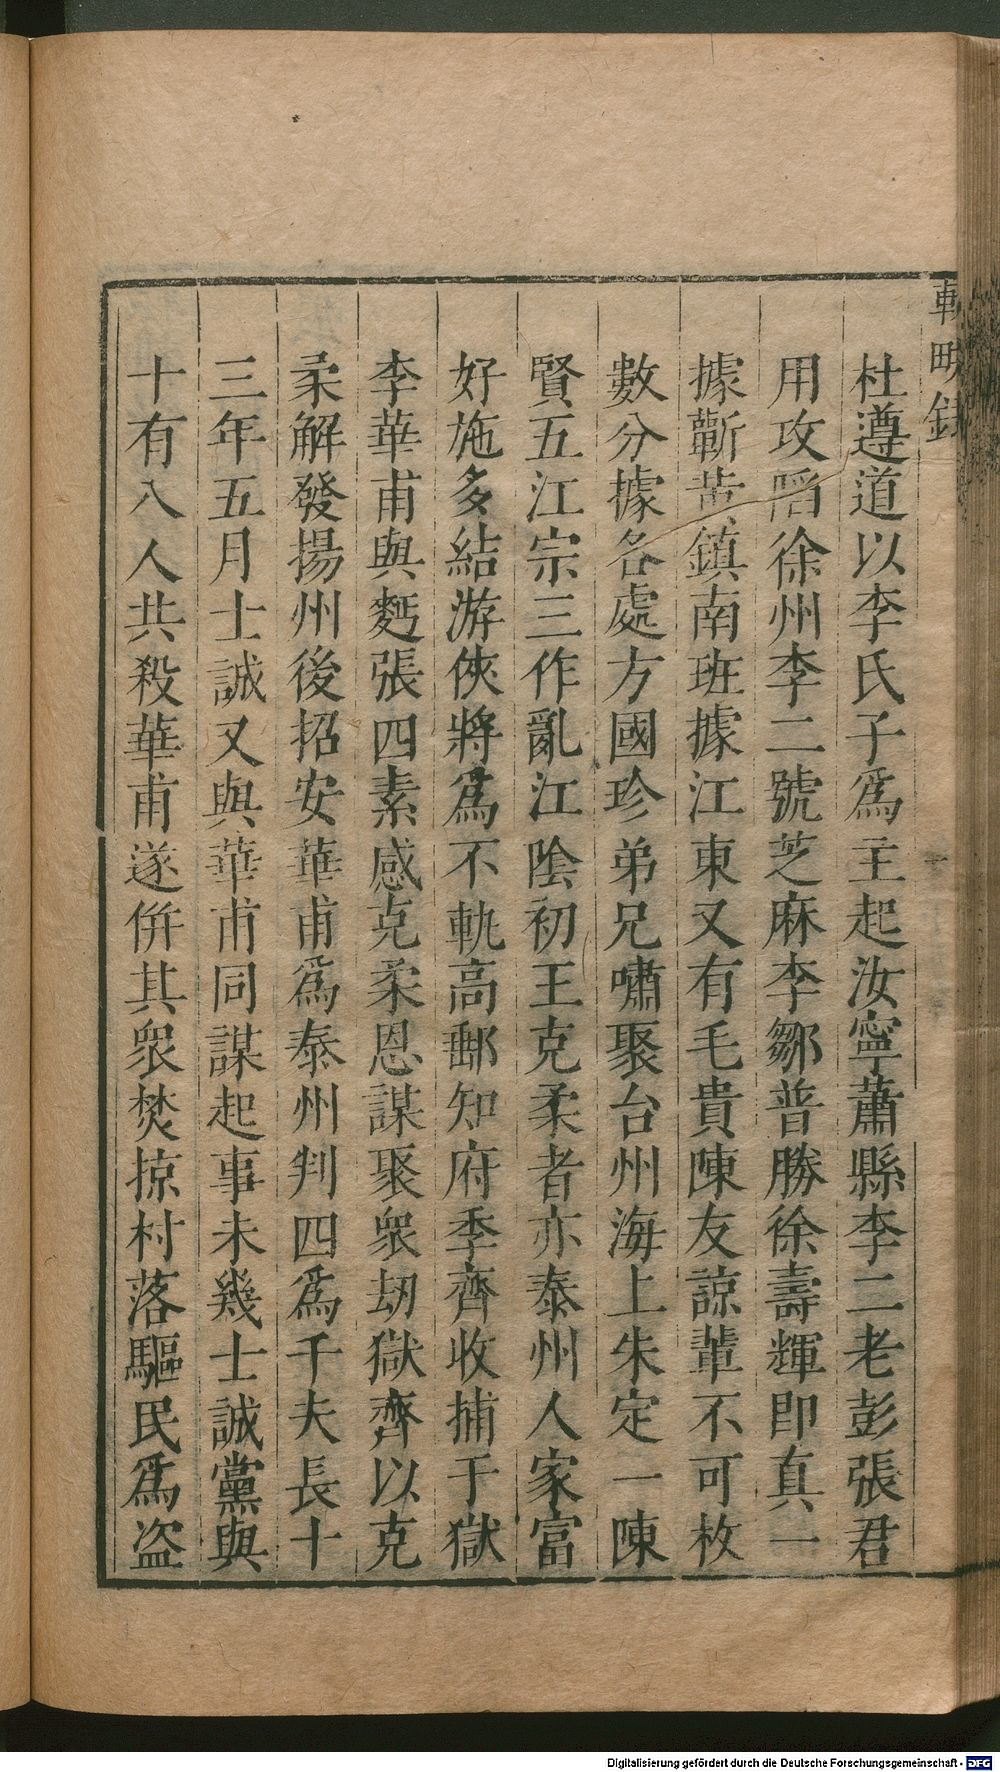 輟畊録
杜遵道以李氏子爲主起汝寧蕭縣李二老彭張君
用攻䧟徐州李二號芝麻李鄒普勝徐壽輝即真一
據蘄黄鎮南班據江東又有毛貴陳友諒輩不可枚
數分據各處方國珍弟兄嘯聚台州海上朱定一陳
賢五江宗三作亂江陰初王克柔者亦泰州人家富
好施多結游俠將爲不軌高郵知府李齊收捕于獄
李華甫與麪張四素感克柔恩謀聚衆劫獄齊以克
柔解發揚州後招安華甫爲泰州判四爲千夫長十
三年五月士誠又與華甫同謀起事未幾士誠黨與
十有八人共殺華甫遂併其衆焚掠村落驅民爲盗
Digitalisierung gefördert durch die Deutsche Forschungsgemeinschaft - DFG